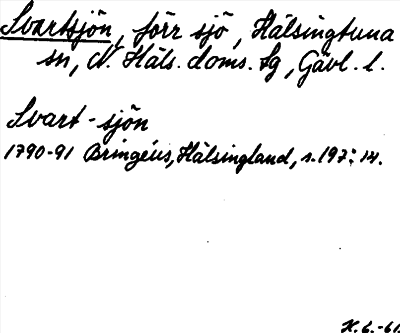 Svartsjön, förr sjö, Hälsingtuna
sn, N. Häls. doms. tg, Gävl. l.
Svart-sjön
1790-91 Bringéus, Hälsingland, s. 197: 14.
H. 6.-61.